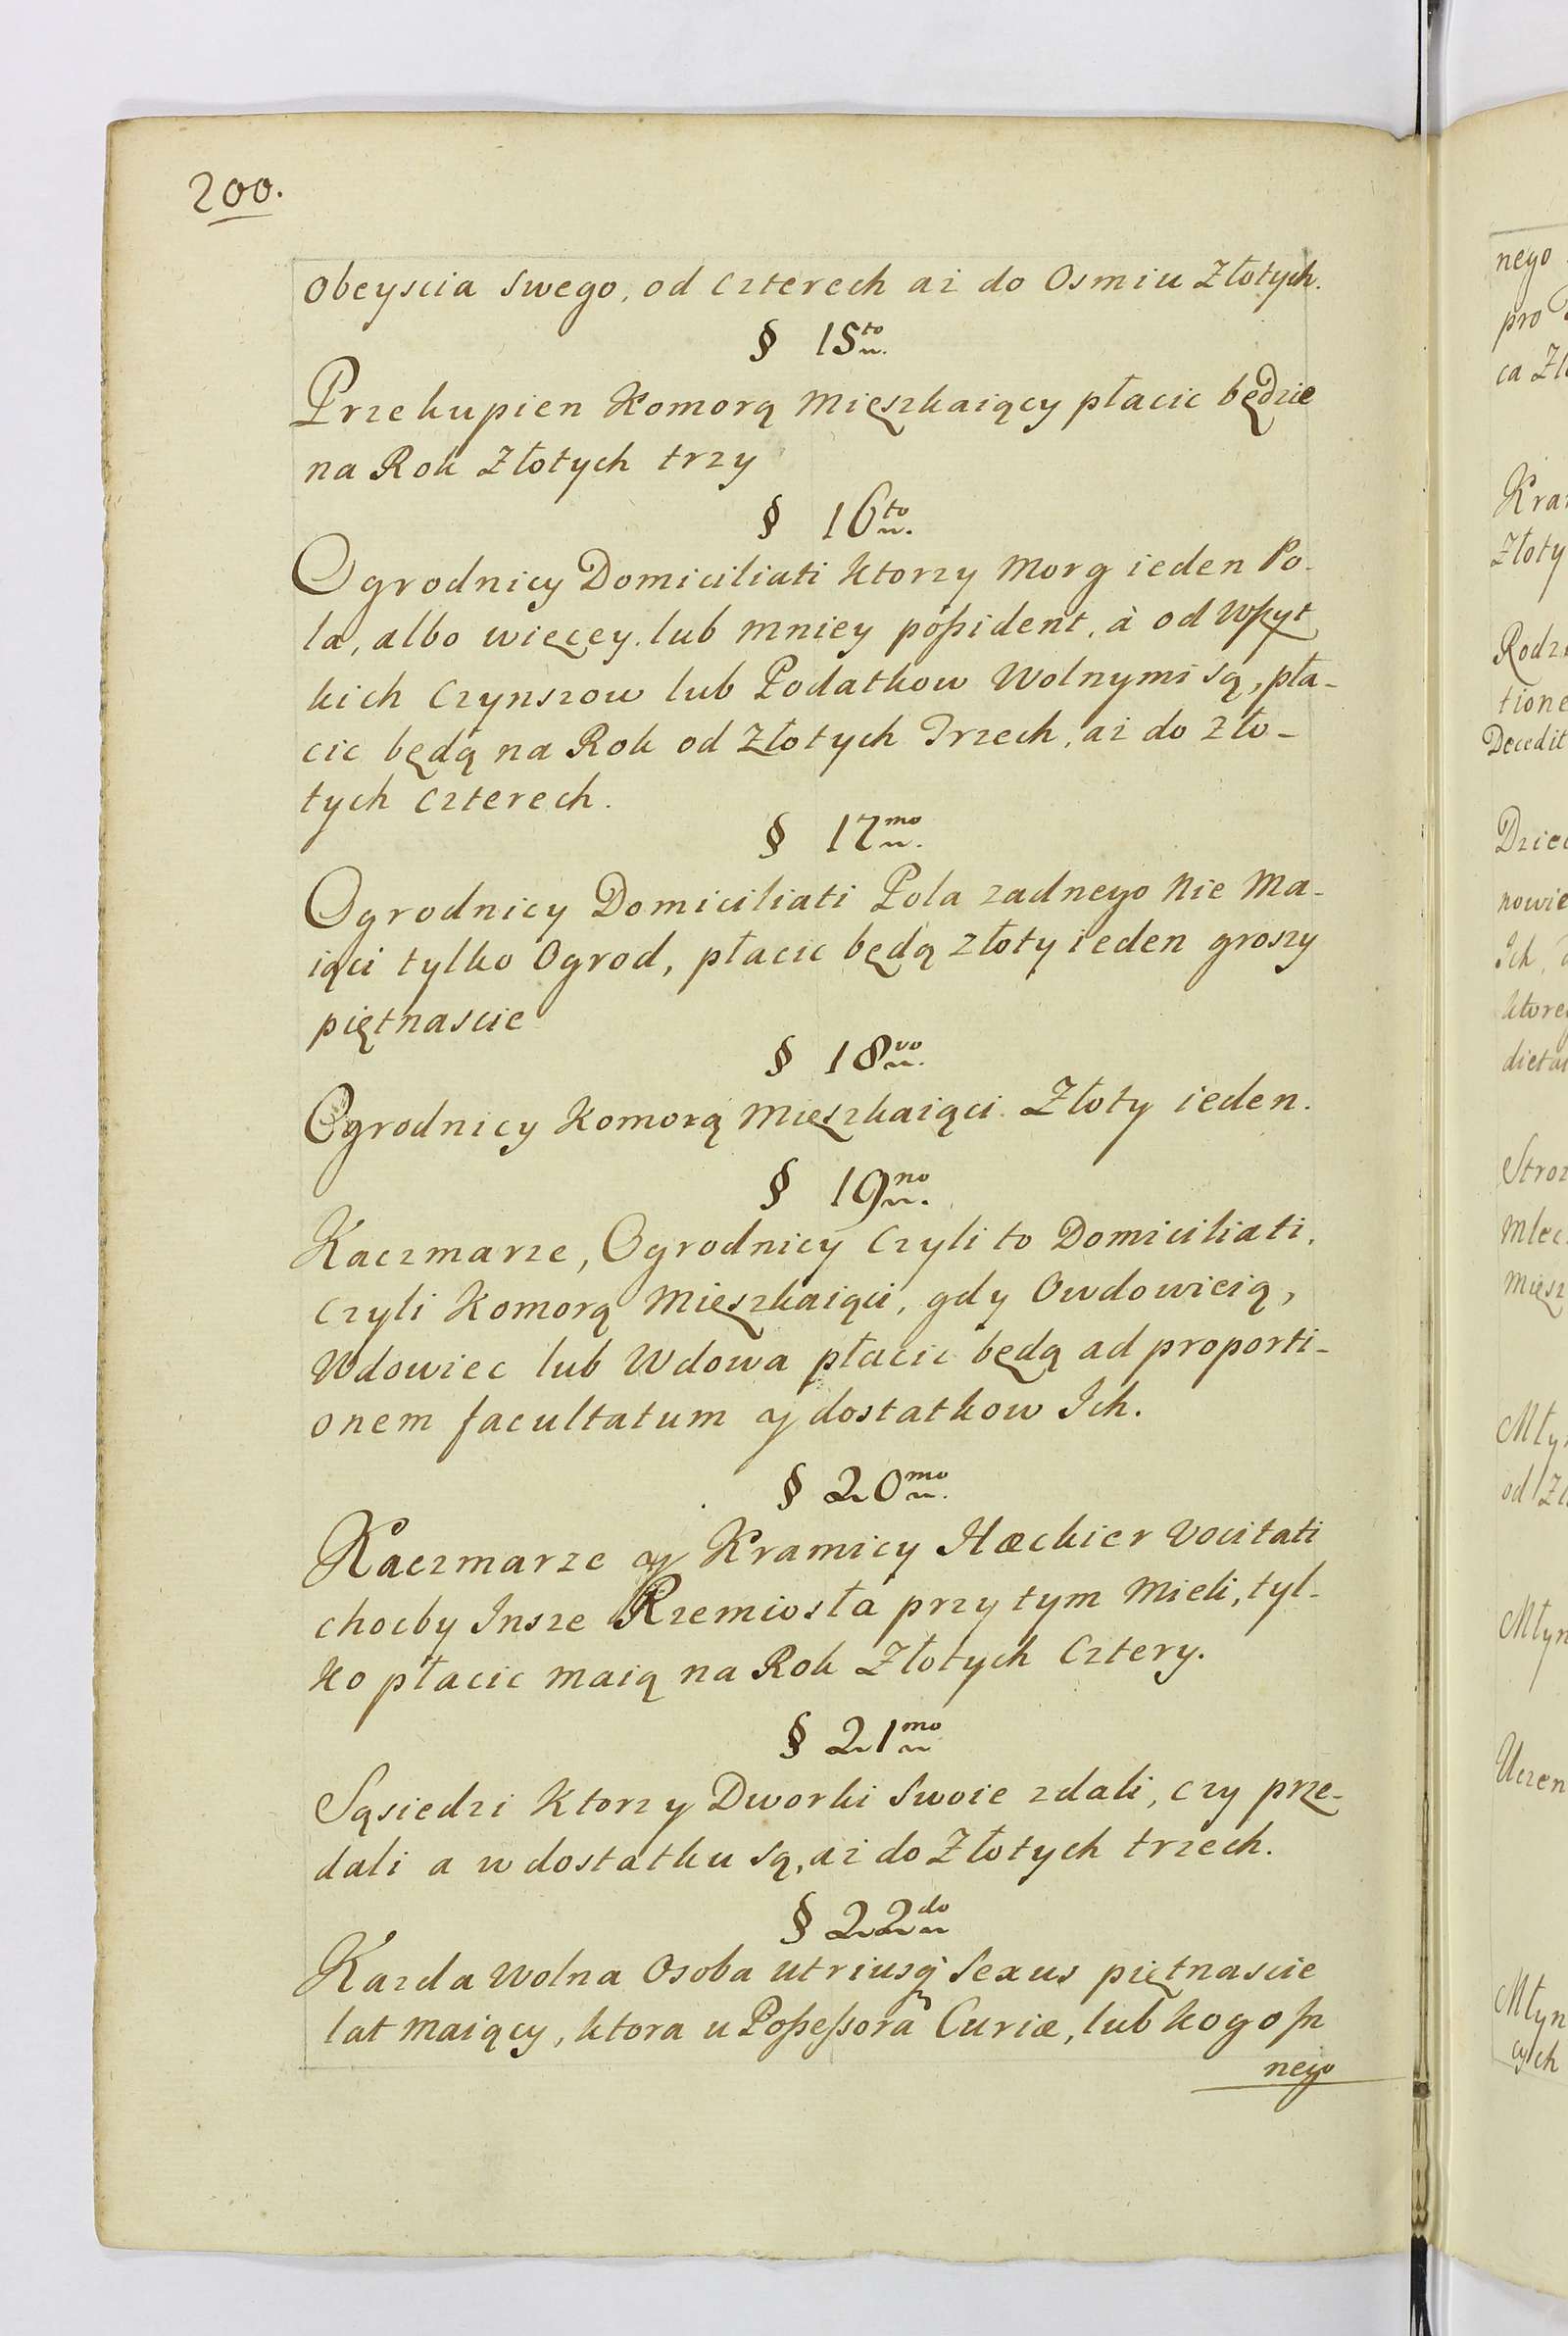 200.
obeyscia swego, od czterech aż do Osmiu Złotych.
§ 15to
Przekupien Komorą Mięszkaiący płacic będzie
na Rok Złotych trzy
§ 16to
Ogrodnicy Domiciliati ktorzy Morg ieden Po-
la, albo więcey lub mniey poßident, à od wszyt
kich Czynszow lub Podatkow Wolnymi są, pła-
cic będą na Rok od Złotych Trzech, aż do zło-
tych czterech.
§ 17mo
Ogrodnicy Domiciliati Pola zadnego Nie Ma-
iąci tylko Ogrod, płacic będą złoty ieden groszy
piętnascie
§ 18vo
Ogrodnicy Komorą Mięszkaiąci Złoty ieden.
§ 19no
Kaczmarze, Ogrodnicy Czyli to Domiciliati,
czyli Komorą Mięszkaiąci, gdy Owdowieią,
Wdowiec lub Wdowa płacic będą ad proporti-
onem facultatum y dostatkow Ich.
§ 20mo
Kaczmarze y Kramicy Hæckier vocitati
chocby Insze Rzemiosła przy tym Mieli, tyl-
ko płacic maią na Rok Złotych Cztery.
§ 21mo
Sąsiedzi Ktorzy Dworki Swoie zdali, czy prze-
dali a w dostatku są, aż do Złotych trzech.
§ 22do
Kazda wolna Osoba utriusq̃ Sexus piętnascie
lat maiący, ktora u Poßeßora Curiæ, lub kogo in
nego
nego
pro
ca
Kra
Złoty
Rodz
tione
Decedit
Dziec
nowie
Ich,
ktore
dieta
Stroz
Mlec
Mięsz
Młyn
od Zł
Młyn
Uczen
Młyn
cych